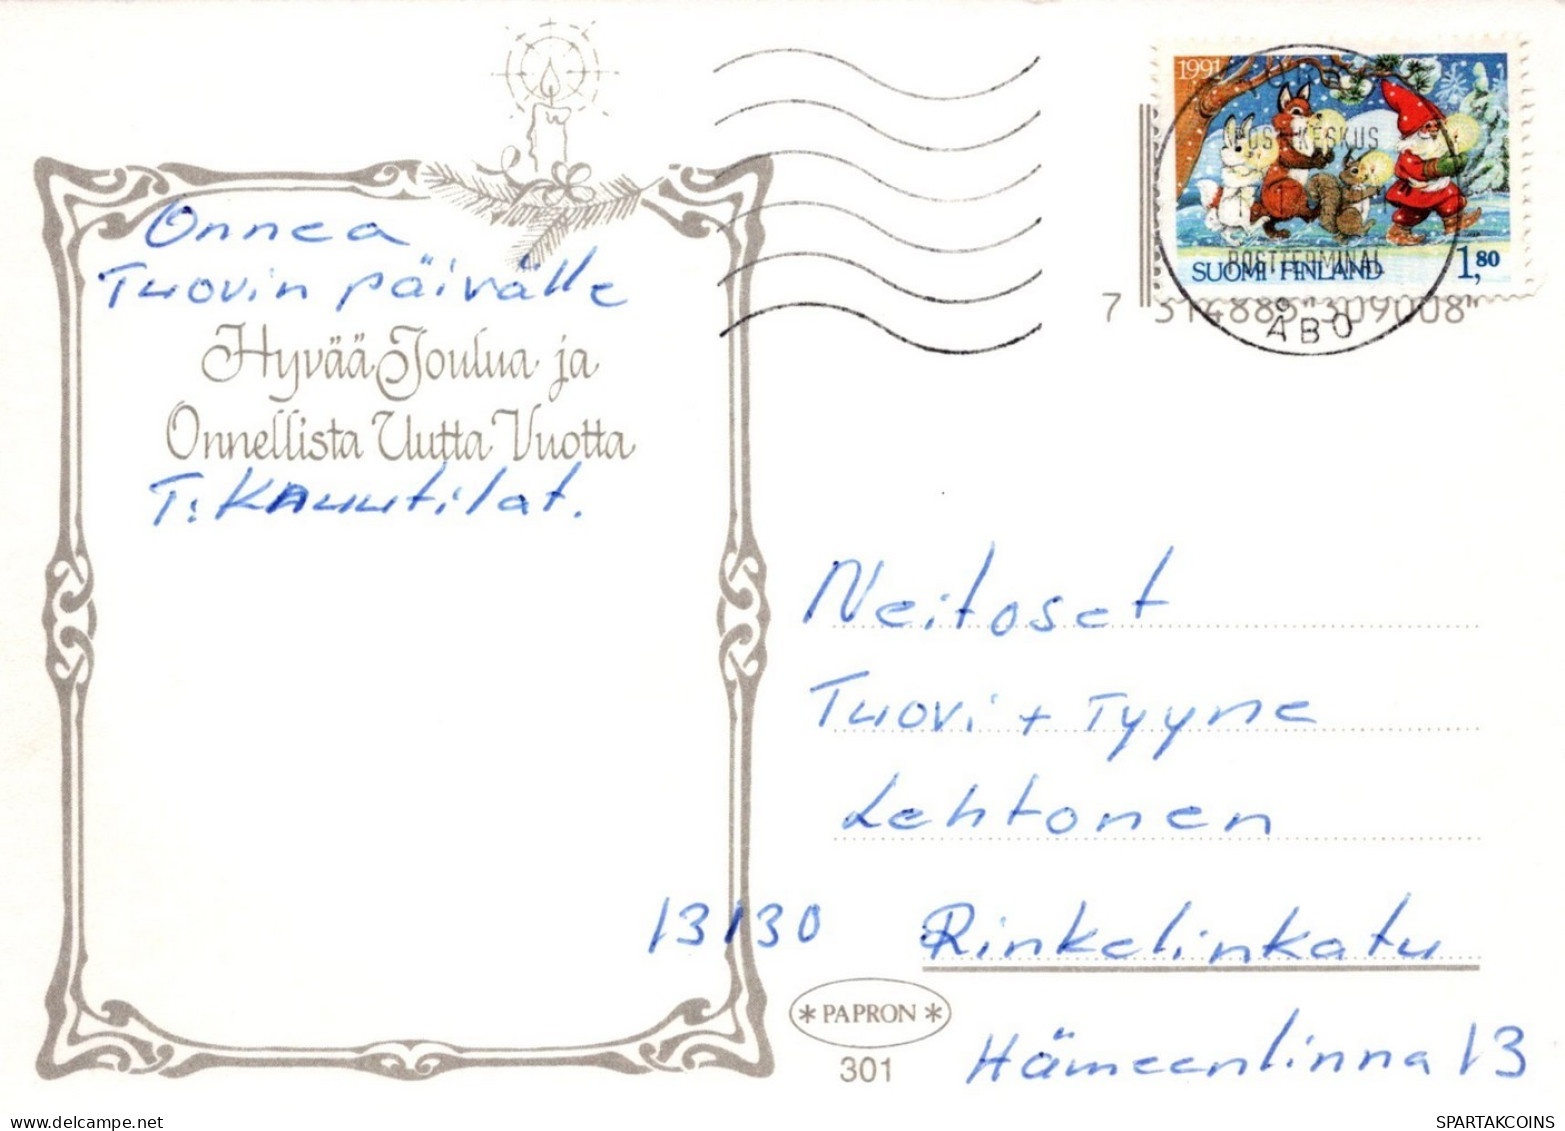 Onnea
Tuovin päivälle
Hyvää Joulua ja
Onnellista Uutta Vuotta
T: Knuutilat.
1991
SUOMI FINLAND
1,80
POSTIKESKUS
POSTTERMINAL
ÅBO
Neitoset
Tuovi + Tyyne
Lehtonen
13130 Rinkelinkatu
* PAPRON *
301
Hämeenlinna 13
SPARTAKCOINS